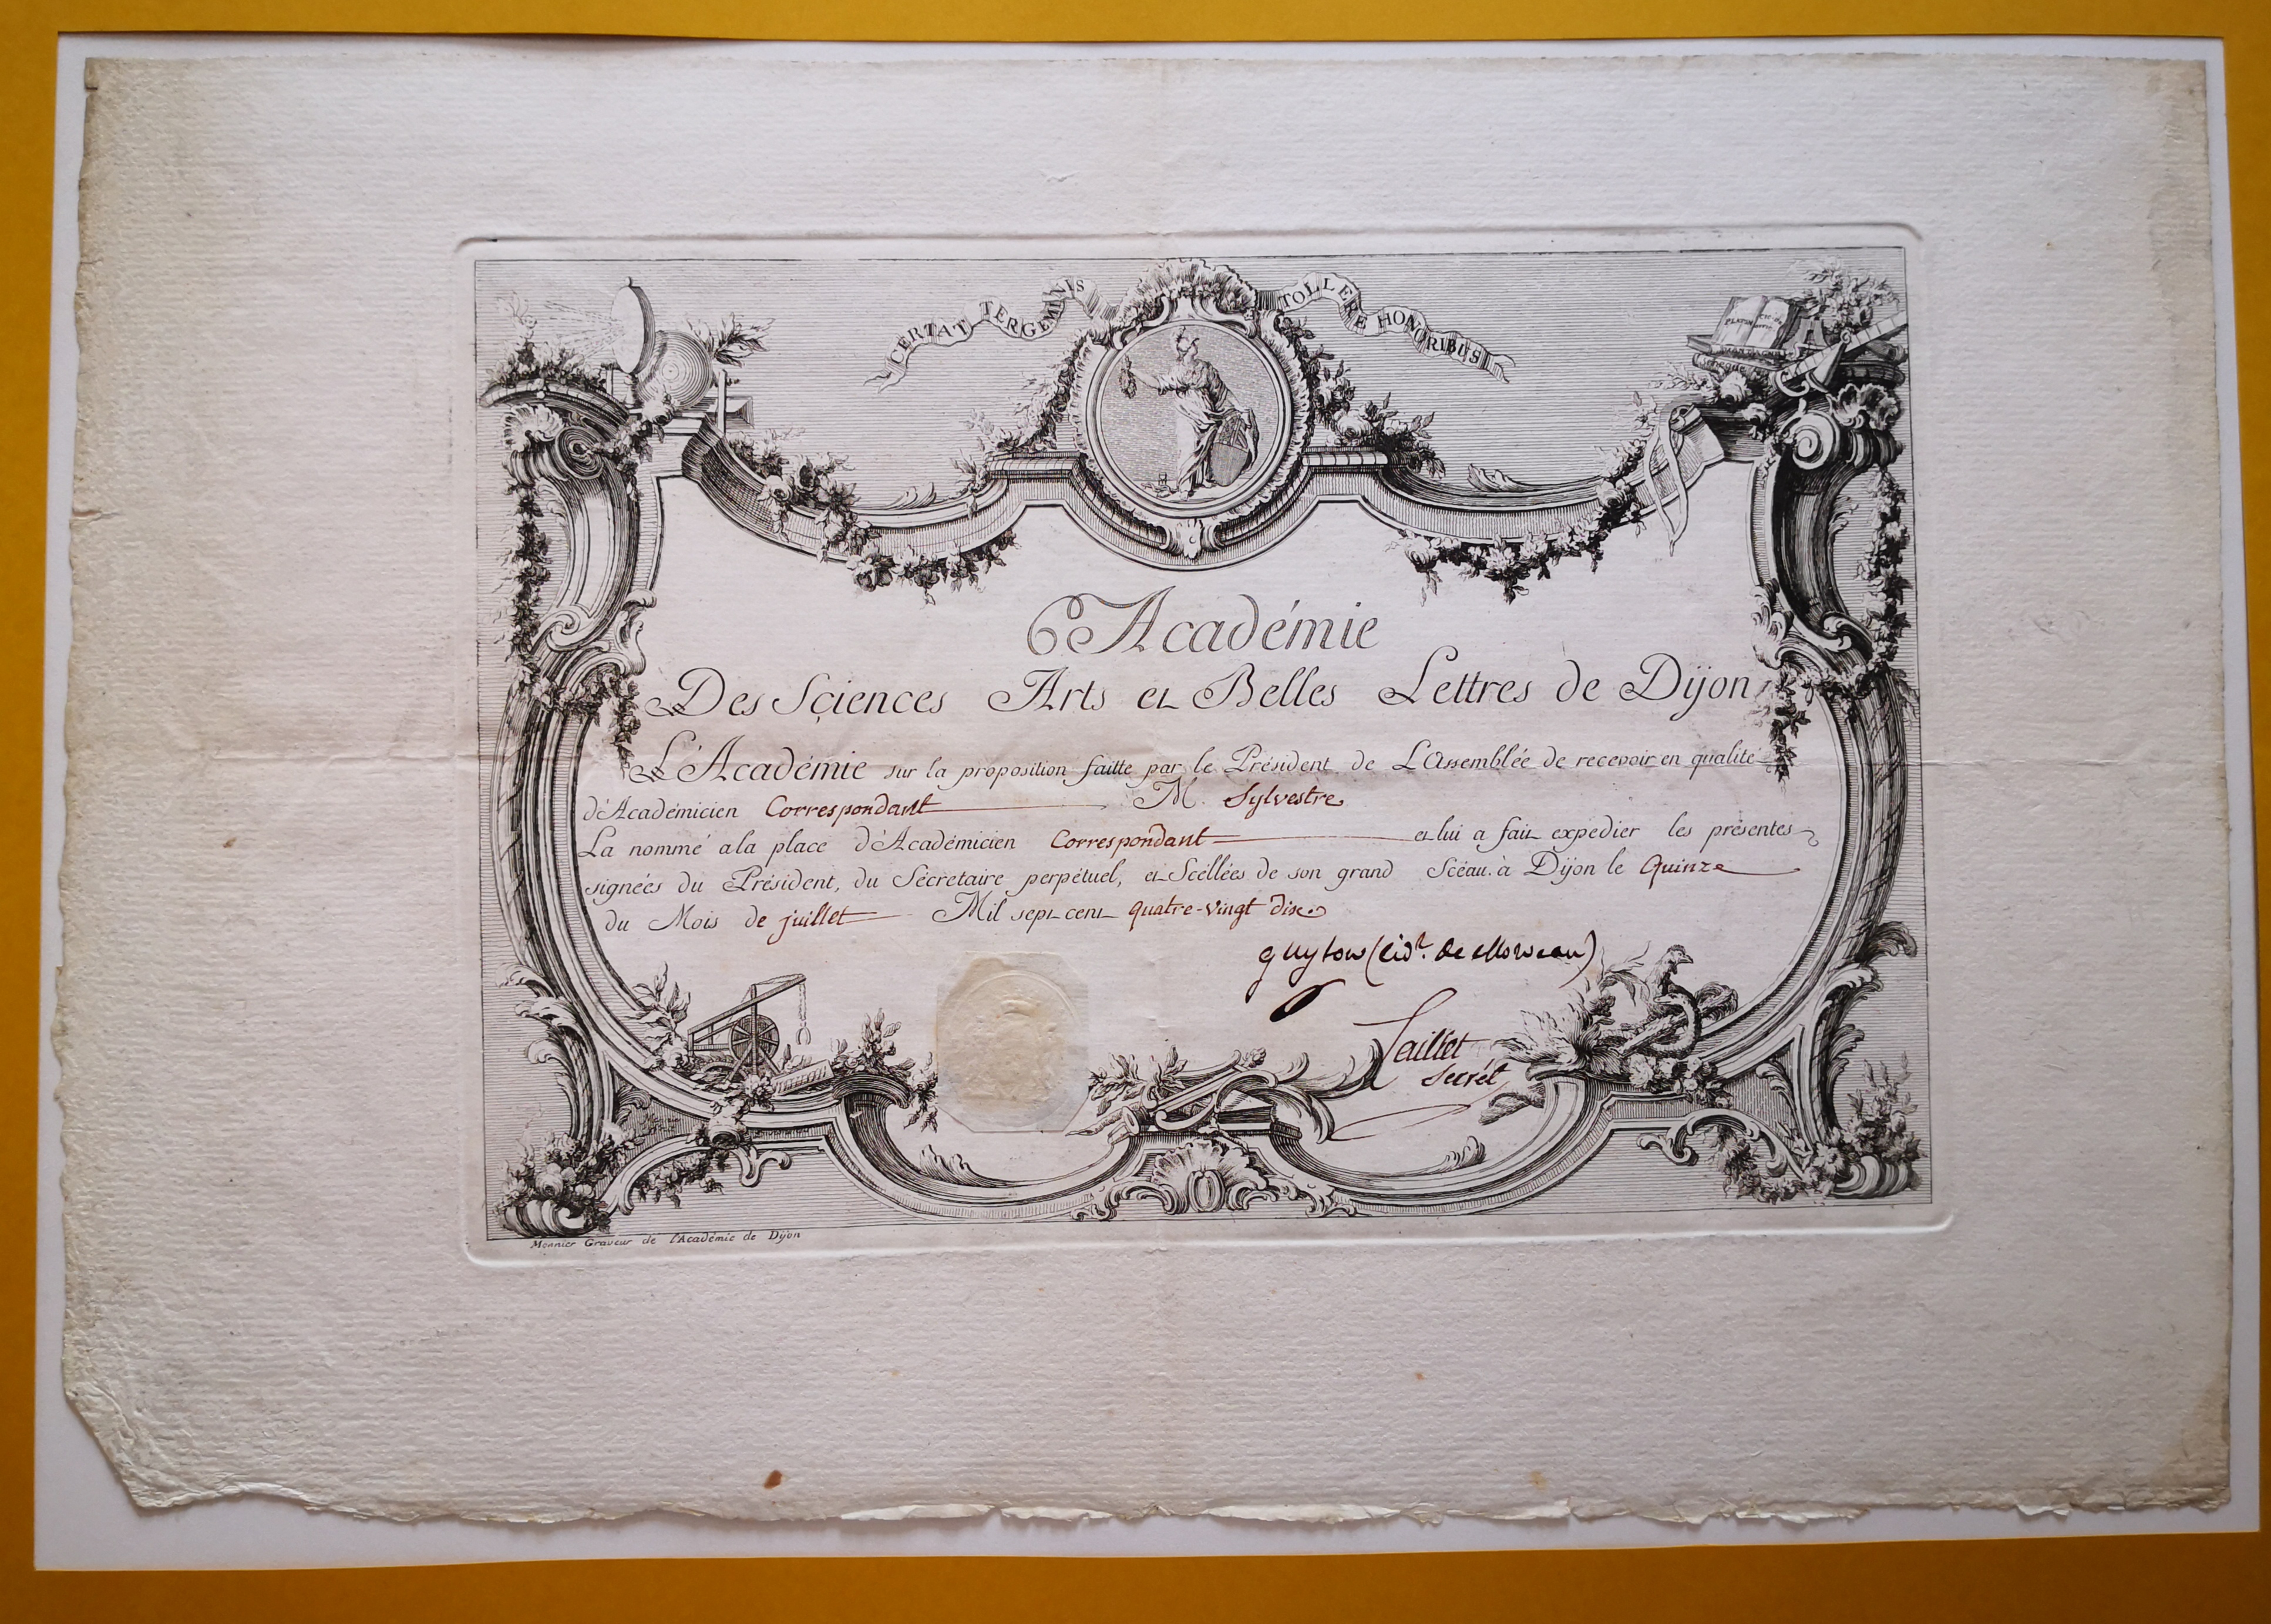 CERTAT TERGEMINIS TOLLERE HONORIBUS
PLATON
Académie
Des Sçiences Arts et Belles Lettres de Dijon
L'Académie sur la proposition faitte par le Président de L'Assemblée de recevoir en qualité
d'Académicien Correspondant M. Sylvestre
La nommé a la place d'Académicien Correspondant et lui a fait expedier les présentes
signées du Président, du Sécretaire perpétuel, et Scéllées de son grand Scéau. à Dijon le Quinze
du Mois de juillet Mil sept cent quatre-vingt dix.
guyton (cidt. de Morveau)
Caillet
Secrét
Monnier Graveur de l'Académie de Dijon